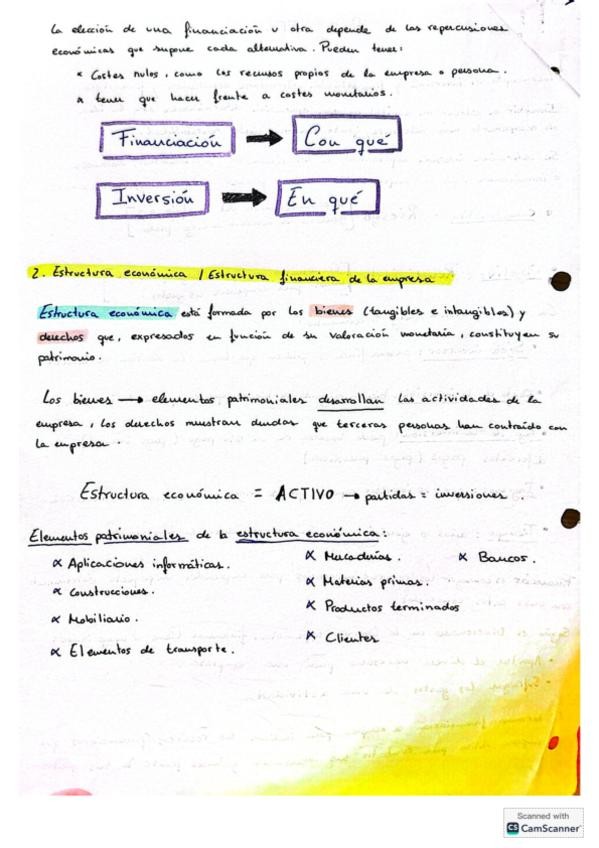 La elección de una financiación u otra depende de las repercusiones
económicas que supone cada alternativa. Pueden tener:
× Costes nulos, como los recursos propios de la empresa o persona.
× tener que hacer frente a costes monetarios.
Financiación → Con qué
Inversión → En qué
2. Estructura económica / Estructura financiera de la empresa
Estructura económica está formada por los bienes (tangibles e intangibles) y
derechos que, expresados en función de su valoración monetaria, constituyen su
patrimonio.
Los bienes → elementos patrimoniales desarrollan las actividades de la
empresa, los derechos muestran deudas que terceras personas han contraído con
la empresa.
Estructura económica = ACTIVO → partidas = inversiones.
Elementos patrimoniales de la estructura económica:
× Aplicaciones informáticas.
× Construcciones.
× Mobiliario.
× Elementos de transporte.
× Mercaderías.
× Materias primas.
× Productos terminados
× Clientes
× Bancos.
Scanned with
CS CamScanner